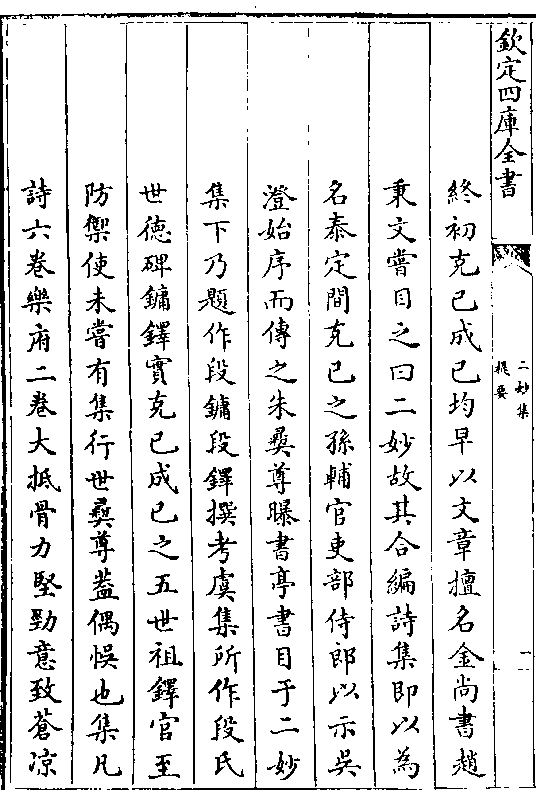 欽定四庫全書
二妙集
提要
一
終初克已成已均早以文章擅名金尚書趙
秉文嘗目之曰二妙故其合編詩集即以為
名泰定間克已之孫輔官吏部侍郎以示吳
澄始序而傳之朱彛尊曝書亭書目于二妙
集下乃題作段鏞段鐸撰考虞集所作段氏
世徳碑鏞鐸實克已成已之五世祖鐸官至
防禦使未嘗有集行世彛尊葢偶悞也集凡
詩六卷樂府二卷大抵骨力堅勁意致蒼凉